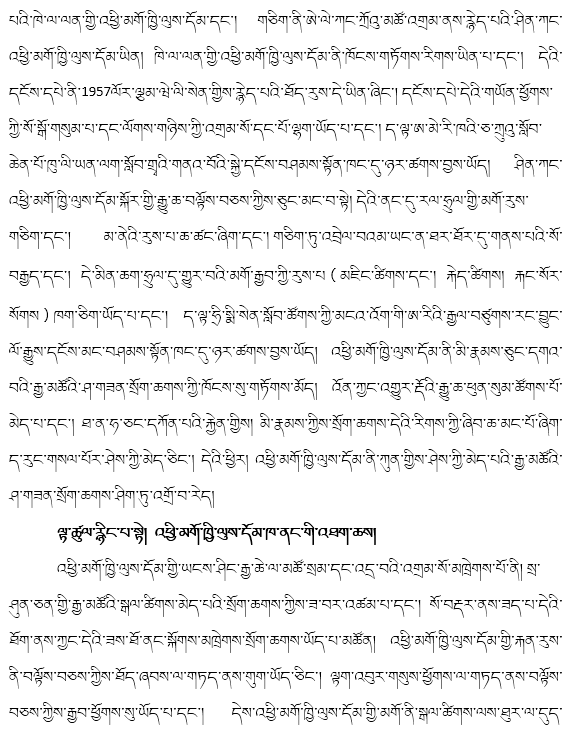 པའི་ཁེ་ལ་ལན་གྱི་འཕྱི་མགོ་ཁྱི་ལུས་དོམ་དང་། གཅིག་ནི་ཨེ་ལེ་ཀང་ཀྲོའུ་མཚོ་འགྲམ་ནས་རྙེད་པའི་ཤིན་ཀང་
འཕྱི་མགོ་ཁྱི་ལུས་དོམ་ཡིན། ཁི་ལ་ལན་གྱི་འཕྱི་མགོ་ཁྱི་ལུས་དོམ་ནི་ཁོངས་གཏོགས་རིགས་ཡིན་པ་དང་། དེའི་
དངོས་དཔེ་ནི་1957ལོར་ལྕམ་ཝེ་ལི་སེན་གྱིས་རྙེད་པའི་ཐོད་རུས་དེ་ཡིན་ཞིང་། དངོས་དཔེ་དེའི་གཡོན་ཕྱོགས་
ཀྱི་སོ་སྒོ་གསུམ་པ་དང་ལོགས་གཉིས་ཀྱི་འགྲམ་སོ་དང་པོ་ལྷག་ཡོད་པ་དང་། ད་ལྟ་ཨ་མེ་རི་ཁའི་ཅ་ཀྲུའུ་སློབ་
ཆེན་པོ་ཁུ་ལི་ཡན་ལག་སློབ་གྲྭའི་གནའ་བོའི་སྐྱེ་དངོས་བཤམས་སྟོན་ཁང་དུ་ཉར་ཚགས་བྱས་ཡོད། ཤིན་ཀང་
འཕྱི་མགོ་ཁྱི་ལུས་དོམ་སྐོར་གྱི་རྒྱུ་ཆ་བལྟོས་བཅས་ཀྱིས་ཅུང་མང་བ་སྟེ། དེའི་ནང་དུ་རལ་ཧྲུལ་གྱི་མགོ་རུས་
གཅིག་དང་། མ་ནེའི་རུས་པ་ཆ་ཚང་ཞིག་དང་། གཅིག་ཏུ་འབྲེལ་བའམ་ཡང་ན་ཐར་ཐོར་དུ་གནས་པའི་སོ་
བརྒྱད་དང་། དེ་མིན་ཆག་ཧྲུལ་དུ་གྱུར་བའི་མགོ་རྒྱབ་ཀྱི་རུས་པ ( མཇིང་ཚིགས་དང་། རྐེད་ཚིགས། རྐང་སོར་
སོགས ) ཁག་ཅིག་ཡོད་པ་དང་། ད་ལྟ་ཧྲི་སྨི་སེན་སློབ་ཚོགས་ཀྱི་མངའ་འོག་གི་ཨ་རིའི་རྒྱལ་བཙུགས་རང་བྱུང་
ལོ་རྒྱུས་དངོས་མང་བཤམས་སྟོན་ཁང་དུ་ཉར་ཚགས་བྱས་ཡོད། འཕྱི་མགོ་ཁྱི་ལུས་དོམ་ནི་མི་རྣམས་ཅུང་དགའ་
བའི་རྒྱ་མཚོའི་ཤ་གཟན་སྲོག་ཆགས་ཀྱི་ཁོངས་སུ་གཏོགས་མོད། འོན་ཀྱང་འགྱུར་རྡོའི་རྒྱུ་ཆ་ཕུན་སུམ་ཚོགས་པོ་
མེད་པ་དང་། ཐ་ན་ཧ་ཅང་དཀོན་པའི་རྐྱེན་གྱིས། མི་རྣམས་ཀྱིས་སྲོག་ཆགས་དེའི་རིགས་ཀྱི་ཞིབ་ཆ་མང་པོ་ཞིག་
ད་རུང་གསལ་པོར་ཤེས་ཀྱི་མེད་ཅིང་། དེའི་ཕྱིར། འཕྱི་མགོ་ཁྱི་ལུས་དོམ་ནི་ཀུན་གྱིས་ཤེས་ཀྱི་མེད་པའི་རྒྱ་མཚོའི་
ཤ་གཟན་སྲོག་ཆགས་ཤིག་ཏུ་འགྲོ་བ་རེད།
ལྟ་ཚུལ་རྙིང་པ་སྟེ། འཕྱི་མགོ་ཁྱི་ལུས་དོམ་ཁ་ནང་གི་འཐག་ཆས།
འཕྱི་མགོ་ཁྱི་ལུས་དོམ་གྱི་ཡངས་ཤིང་རྒྱ་ཆེ་ལ་མཚོ་སྲམ་དང་འདྲ་བའི་འགྲམ་སོ་མཁྲེགས་པོ་ནི། སྲ་
ཤུན་ཅན་གྱི་རྒྱ་མཚོའི་སྒལ་ཚིགས་མེད་པའི་སྲོག་ཆགས་ཀྱིས་ཟ་བར་འཚམ་པ་དང་། སོ་བརྡར་ནས་ཟད་པ་དེའི་
ཐོག་ནས་ཀྱང་དེའི་ཟས་ཐོ་ནང་སྐོགས་མཁྲེགས་སྲོག་ཆགས་ཡོད་པ་མཚོན། འཕྱི་མགོ་ཁྱི་ལུས་དོམ་གྱི་རྐན་རུས་
ནི་བལྟོས་བཅས་ཀྱིས་ཐོད་ཞབས་ལ་གཏད་ནས་གུག་ཡོད་ཅིང་། ལྟག་འབུར་གསུས་ཕྱོགས་ལ་གཏད་ནས་བལྟོས་
བཅས་ཀྱིས་རྒྱབ་ཕྱོགས་སུ་ཡོད་པ་དང་། དེས་འཕྱི་མགོ་ཁྱི་ལུས་དོམ་གྱི་མགོ་ནི་སྒལ་ཚིགས་ལས་ཐུར་ལ་དུད་